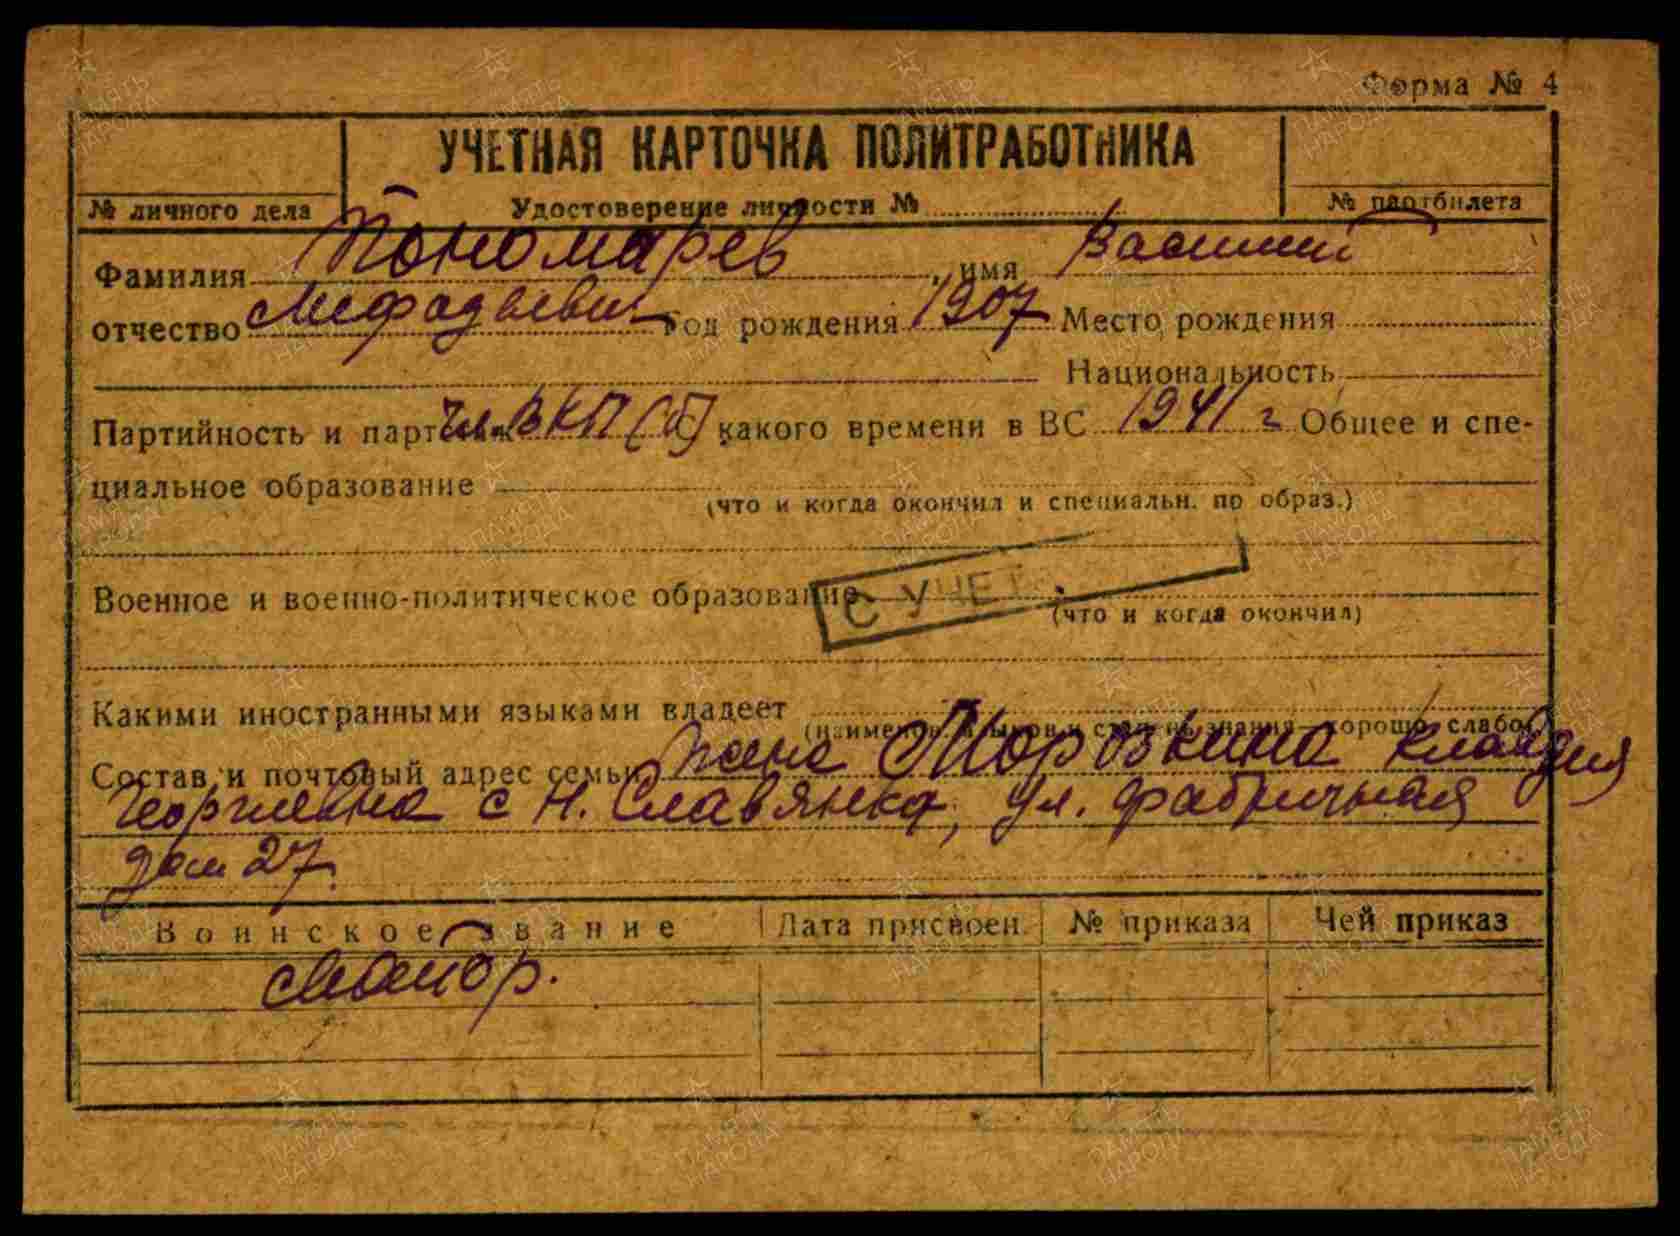 Форма № 4
УЧЕТНАЯ КАРТОЧКА ПОЛИТРАБОТНИКА
№ личного дела Удостоверение личности № № партбилета
Фамилия Пономарев, имя Василий
отчество Мефадьевич Год рождения 1907 Место рождения
Национальность
Партийность и партстаж чл. ВКП(б) с какого времени в ВС 1941 г Общее и спе-
циальное образование
(что и когда окончил и специальн. по образ.)
Военное и военно-политическое образование
С УЧЕТ
(что и когда окончил)
Какими иностранными языками владеет
(наименов. языков и степень знания—хорошо, слабо)
Состав и почтовый адрес семьи жена Моровкина Клавдия
Георгиевна с Н. Славянка, ул. Фабричная
дом 27.
Воинское звание Дата присвоен. № приказа Чей приказ
Майор.
ПАМЯТЬ НАРОДА